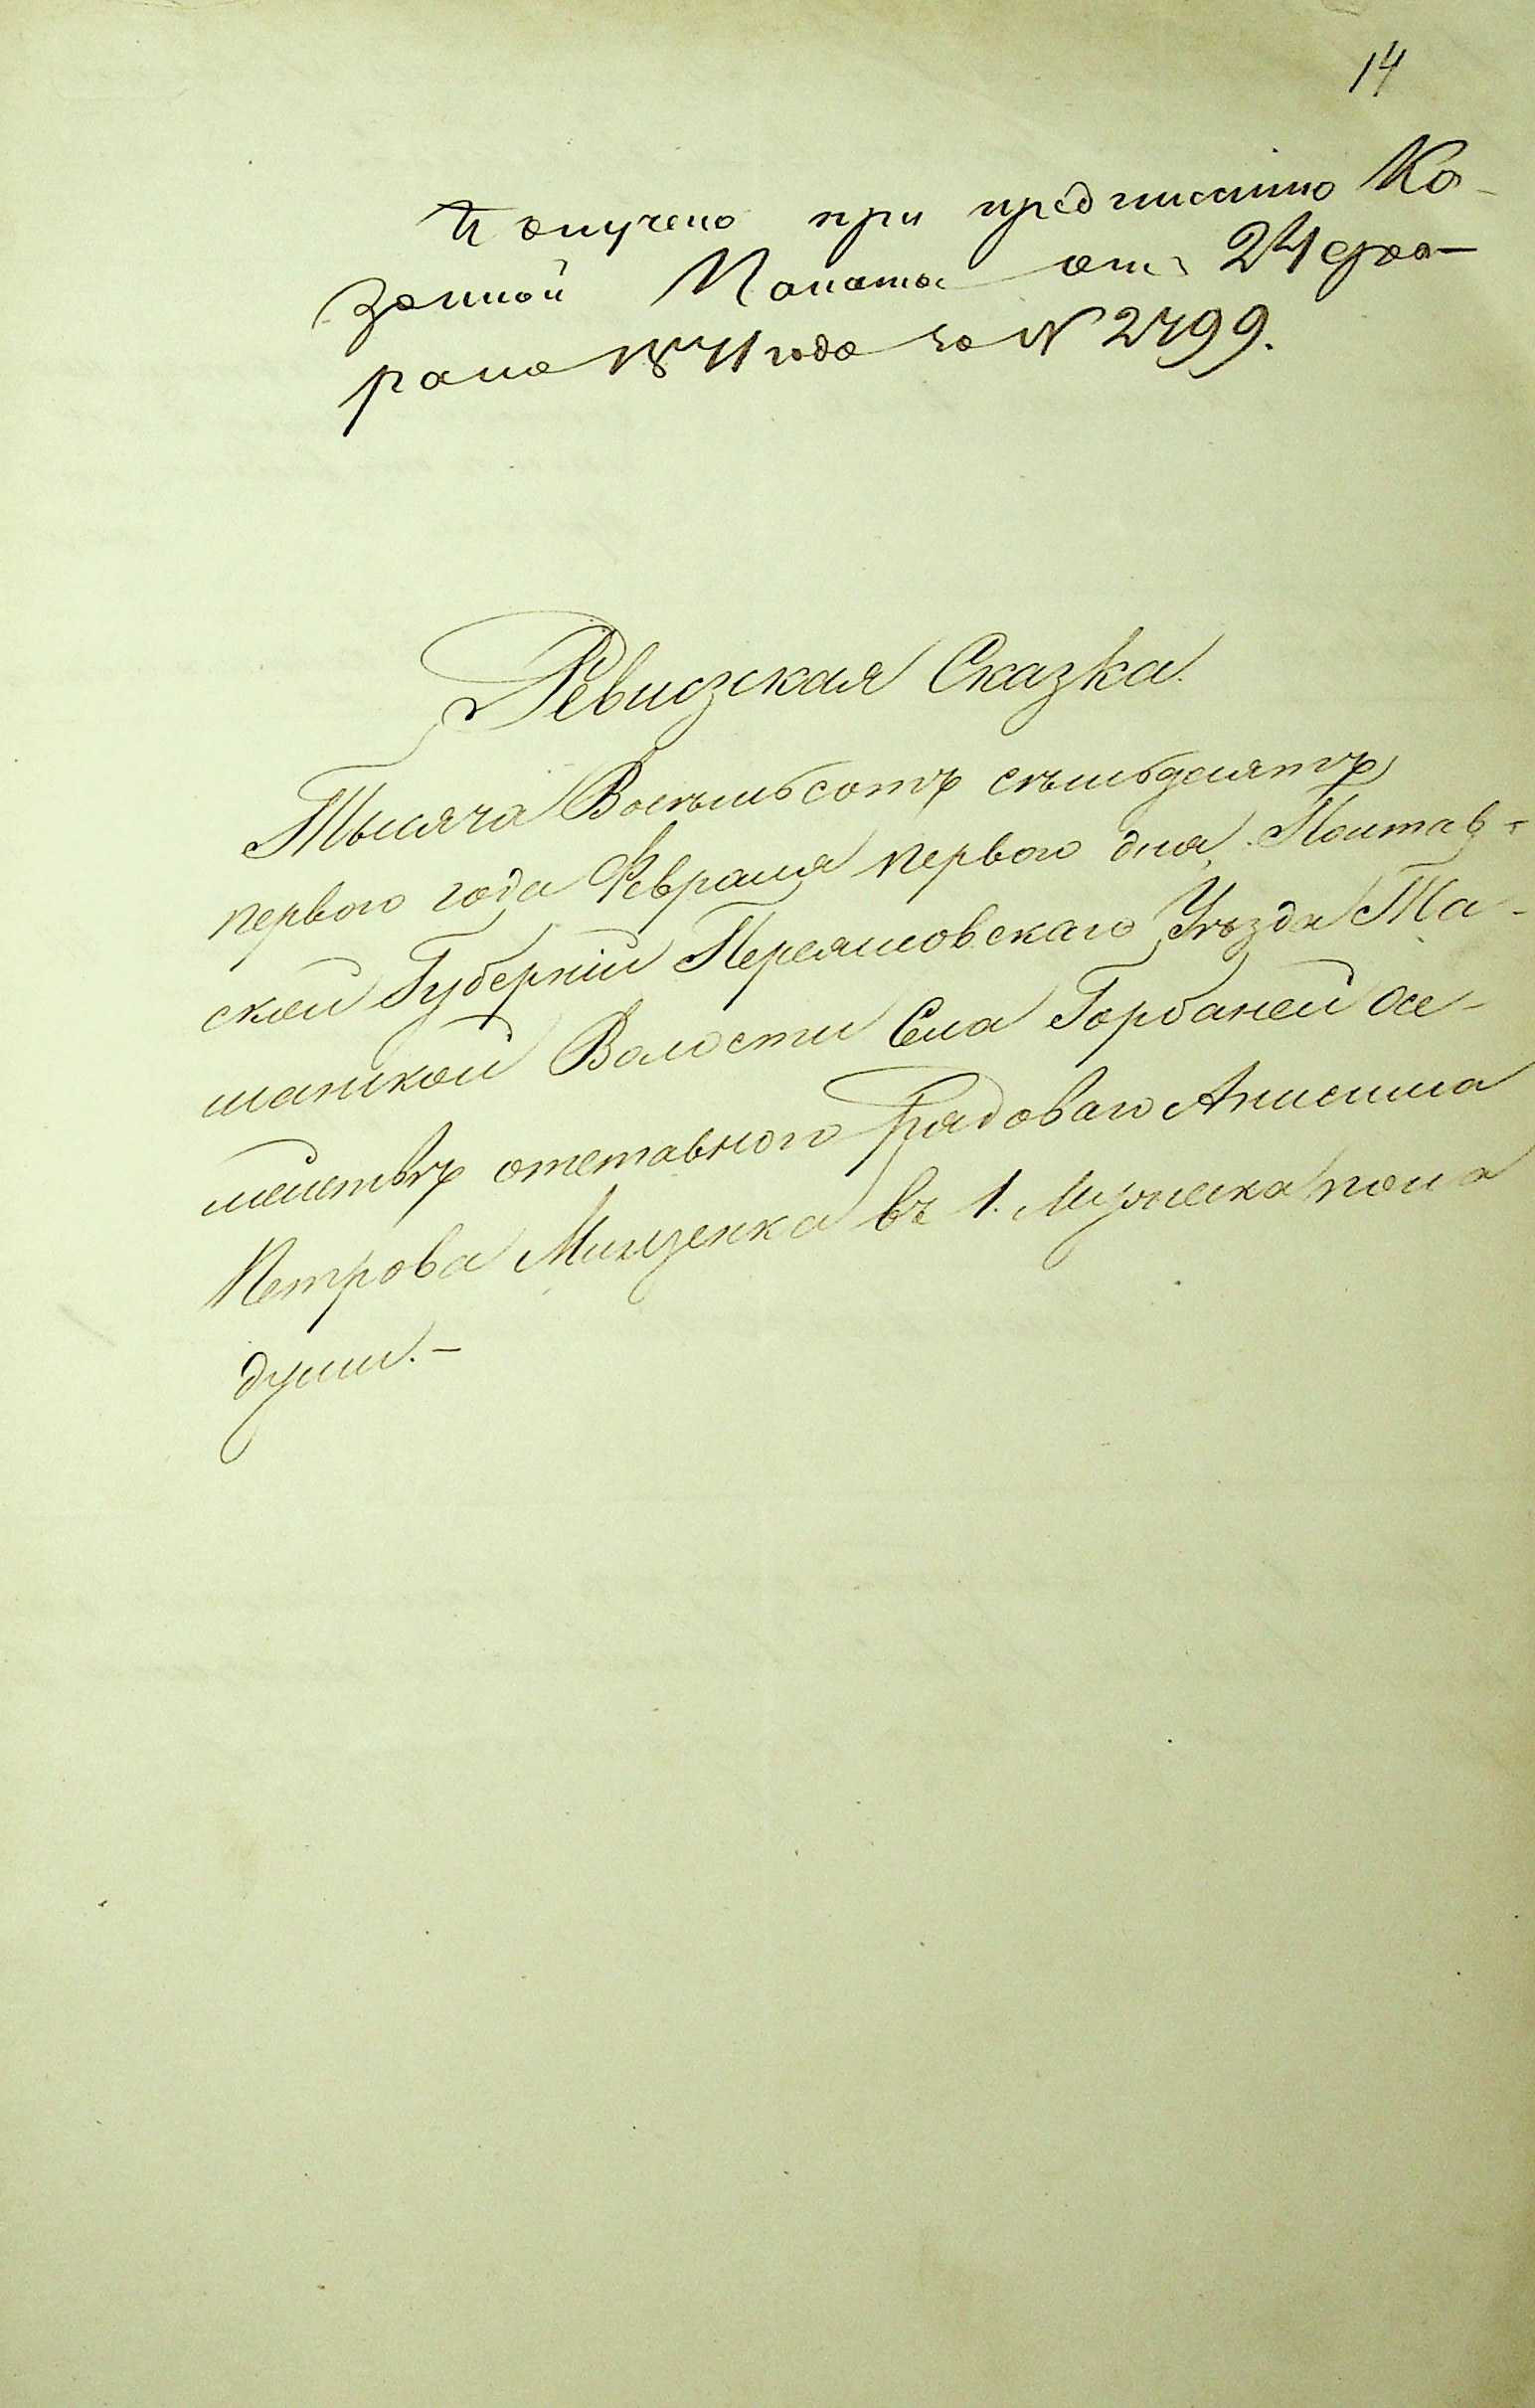 14
Получено при предписанiи Ка-
зенной Палаты отъ 24 фев-
раля 1871 года за № 2499.
Ревизская Сказка.
Тысяча Восѣмьсотъ сѣмьдесятъ
первого года Февраля первого дня. Полтав-
ской Губернiи Переяславскаго Уѣзда Та-
шанской Волости Села Горбаней о се-
мействѣ отставного Рядоваго Анисима
Петрова Мищенка въ 1. Мужеска пола
души.—